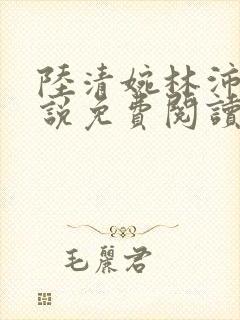 陸清婉林沛
說免費閱讀
毛麗君